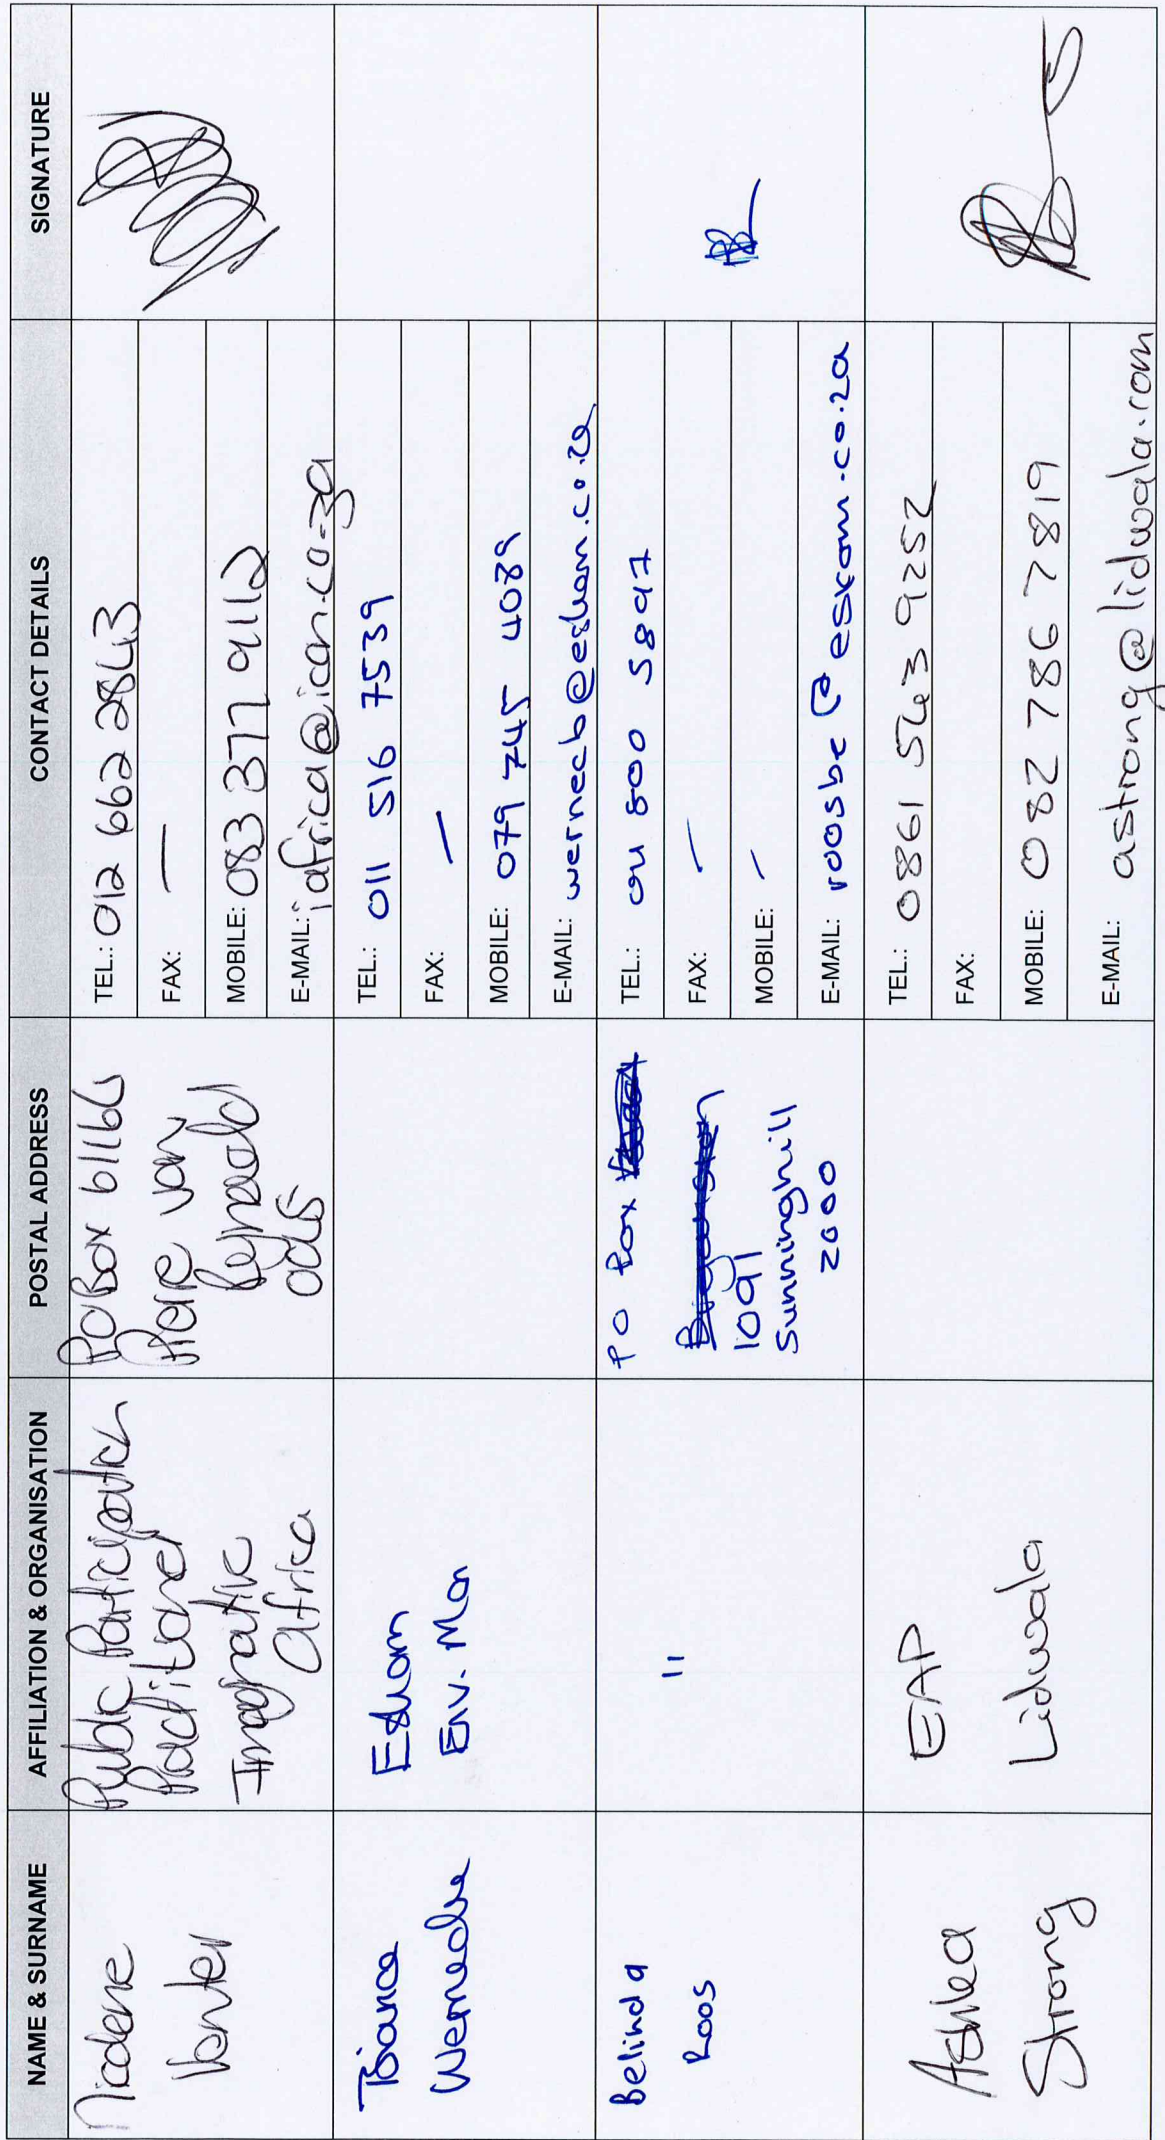 NAME & SURNAME
AFFILIATION & ORGANISATION
POSTAL ADDRESS
CONTACT DETAILS
SIGNATURE
Nicolene
Venter
Public Participation
Practitioner
Imaginative
Africa
PO Box 61166
Pierre van
Ryneveld
0045
TEL.: 012 662 2843
FAX: —
MOBILE: 083 377 9112
E-MAIL: iafrica@ican.co.za
Bianca
Wernecke
Eskom
Env. Man
TEL.: 011 516 7539
FAX: —
MOBILE: 079 745 4089
E-MAIL: wernecb@eskom.co.za
Belinda
Roos
"
PO Box
1091
Sunninghill
2000
TEL: 011 800 5897
FAX: -
MOBILE: -
E-MAIL: roosbe@eskom.co.za
Ashlea
Strong
EAP
Lidwala
TEL.: 0861 543 9252
FAX:
MOBILE: 082 786 7819
E-MAIL: astrong@lidwala.com